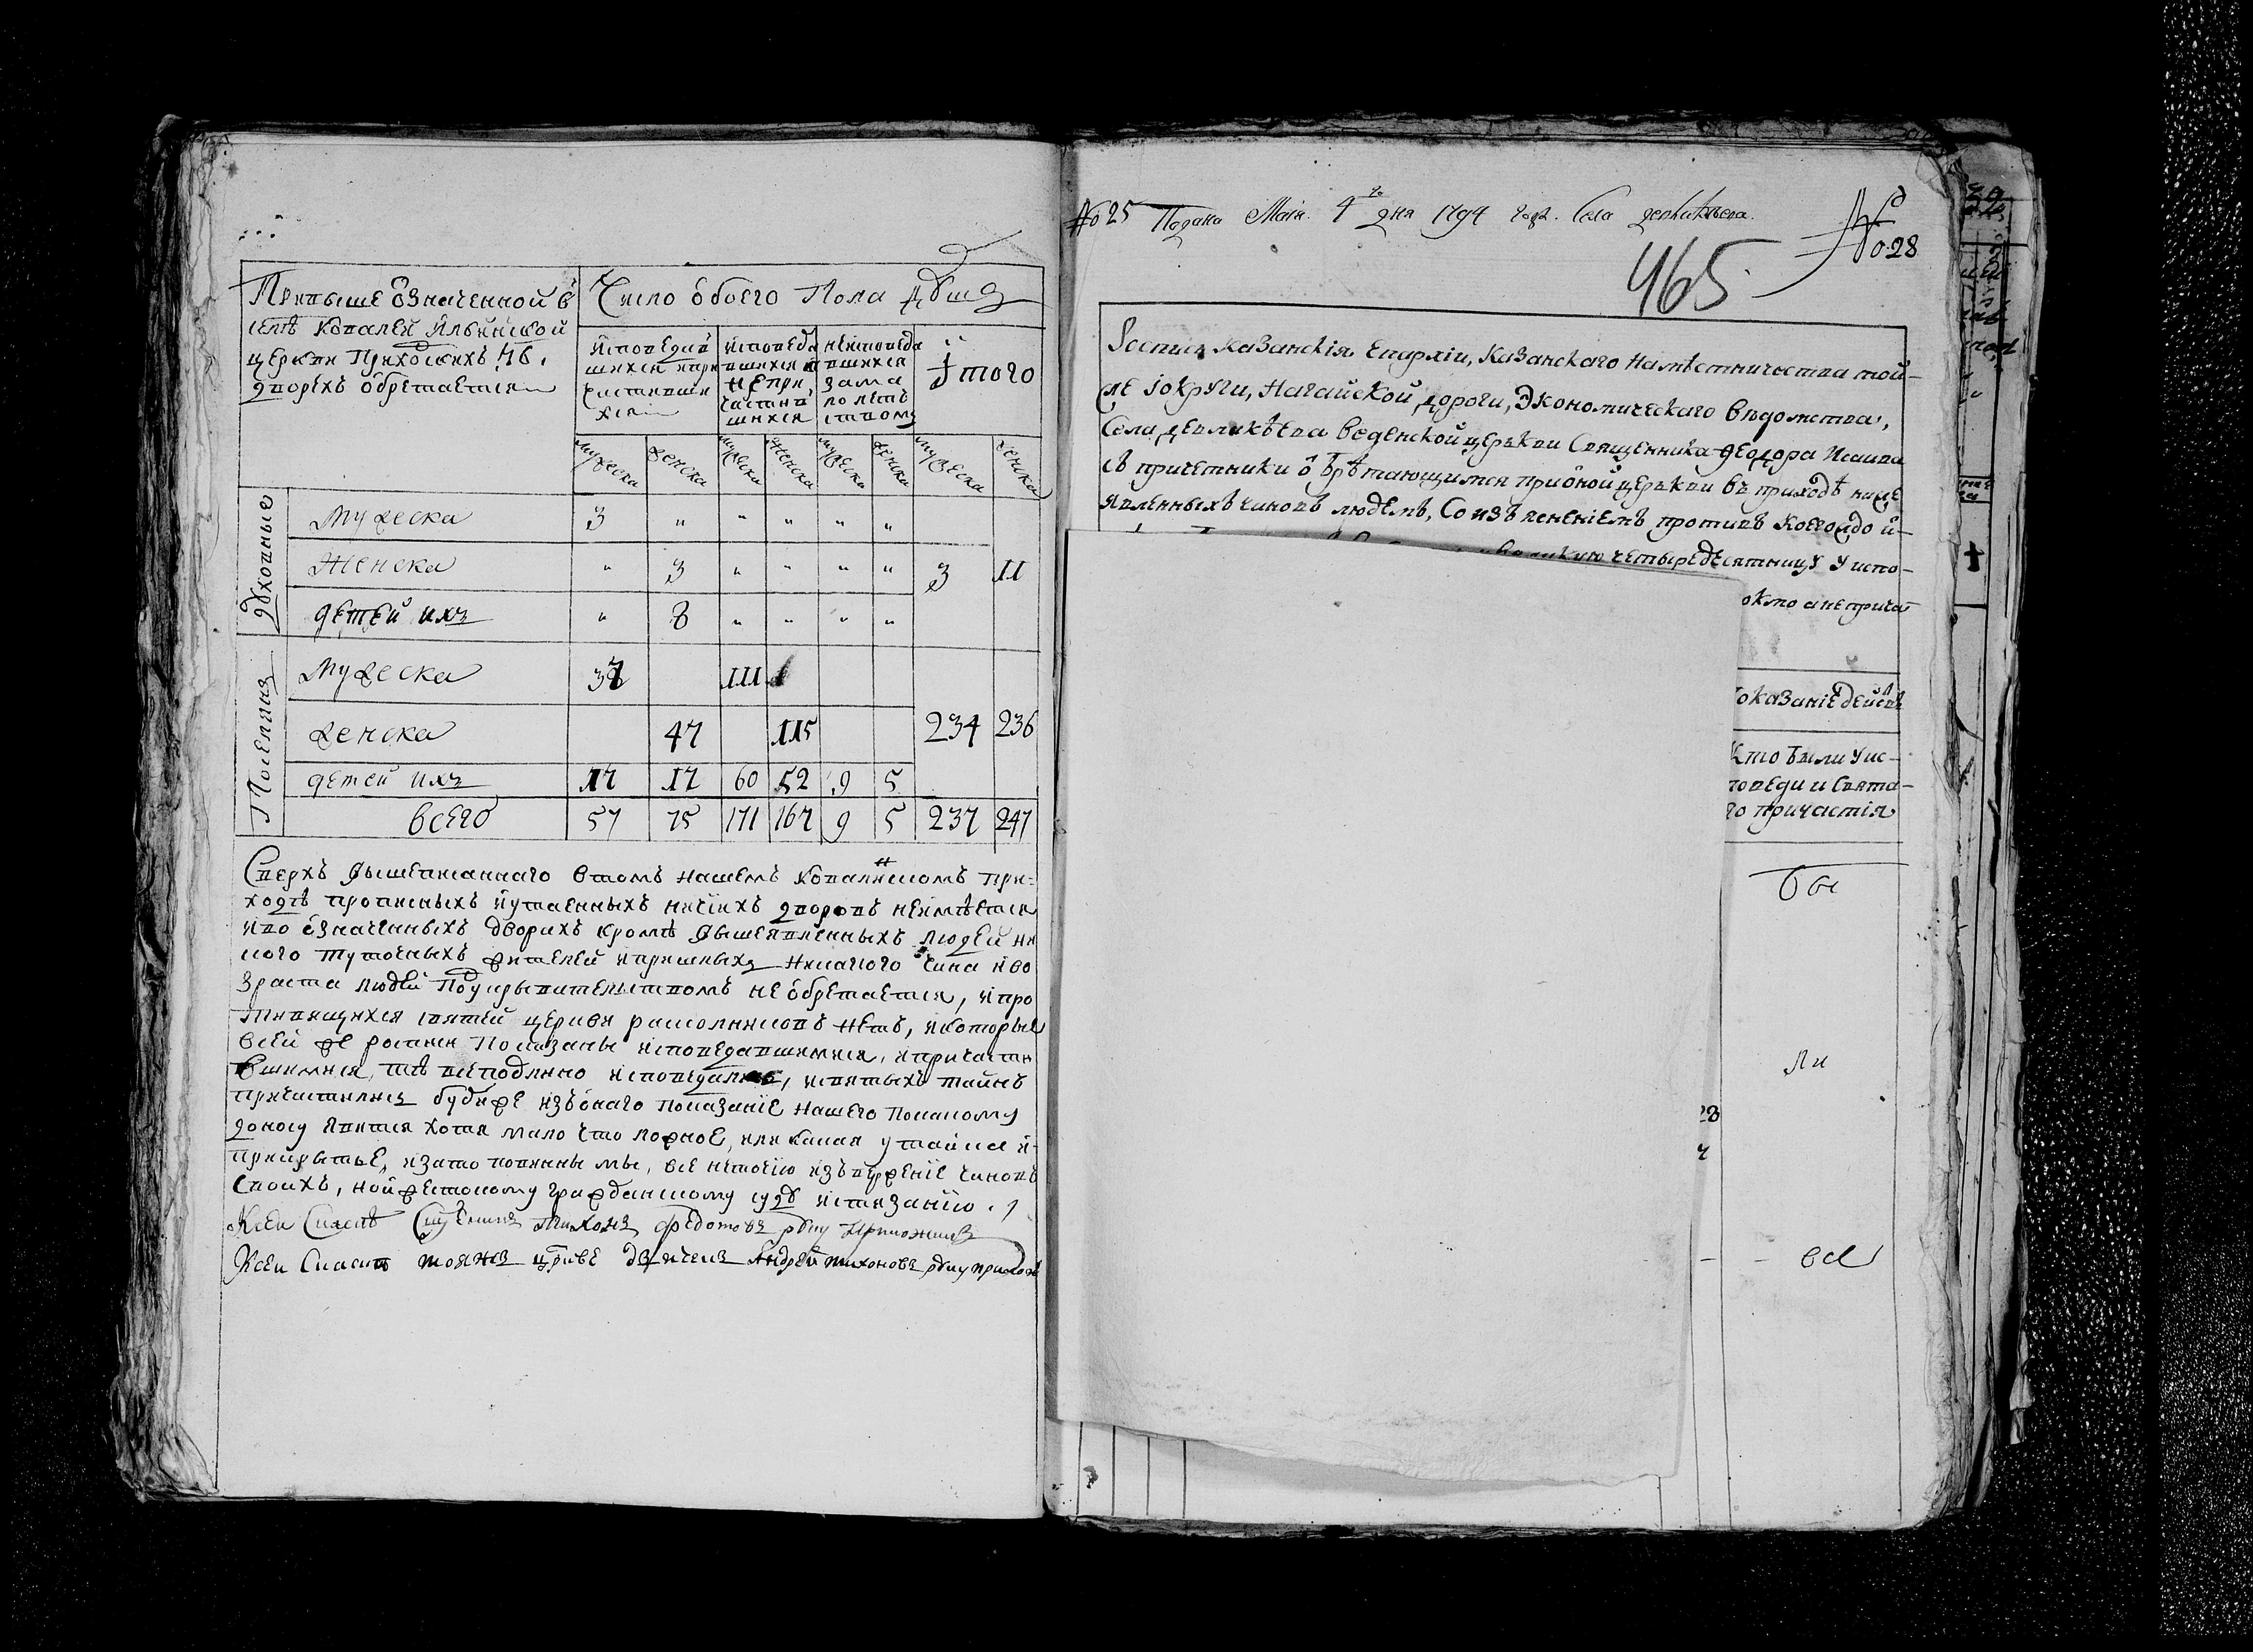 Превыше ѡзначенной в
селѣ Ковалей Ильинской
церкви Приходскихъ 76.
дворѣхъ обретается
Число обоего Пола душъ
исповедав
шихся и при
частивши
хся
исповеда
вшихся а
не при
частив
шихся
неисповеда
вшихся
за ма
лолетъ
ством
Итого
мужеска
женска
мужеска
женска
мужеска
женска
мужеска
женска
духовные
Мужеска 3 " " " " "
Женска " 3 " " " " 3 11
детей ихъ " 8 " " " "
Поселяня
Мужеска 37 111
женска 47 115 234 236
детей ихъ 17 17 60 52 9 5
всего 57 75 171 167 9 5 237 247
Сверхъ вышеписаннаго втомъ нашемъ Ковалинскомъ при-
ходѣ прописныхъ и утаенныхъ ничіихъ дворовъ неимѣется
и во означенныхъ дворихъ кромѣ вышеявленныхъ людей ни
кого туточныхъ жителей и пришлыхъ никакого чина и во
зраста людей Подукрывителством не обретается, и про
тивящихся святей церкви раскольниковъ нетъ, и которые
всей же росписи Показаны исповедавшимися, и причасти
вшимися, тѣ неподлинно исповедались, и святыхъ таинъ
причастились будиже изъ онаго показаніе нашего Покакому
доносу явится хотя мало что ложное, или какая утайка и
прикрытье, и зато повинны мы, все неточию изъвержение чиновъ
своихъ, но и жестокому гражданскому суду истязанию.
Ксеи Скаскѣ Сщенникъ Тихонъ Федотовъ руку приложилъ
Ксеи Скаски тояжъ цркве дьячекъ Андрей Тихоновъ руку приложи
№ 25 Подана Маія. 4го дня 1794 года. Села девликѣева.
№ 28
465
Роспись Казанскія Епархіи, Казанскаго Намѣстничества той-
же їокруги, Нагайской дороги, Экономическаго вѣдомства,
Села девликѣева веденской церькви Священника Феодора Исаива
съ причетники обрѣтающимся приѻной церькви въ приходѣ ниже
явленныхъ чиновъ людемъ, Со изъясненіемъ противъ Коегождо и-
великую четыредесятницу у испо-
окмо а не прича
оказаніе действ
Кто были у ис-
поведи и свята-
го причастія
Бы
23
ли
- - все